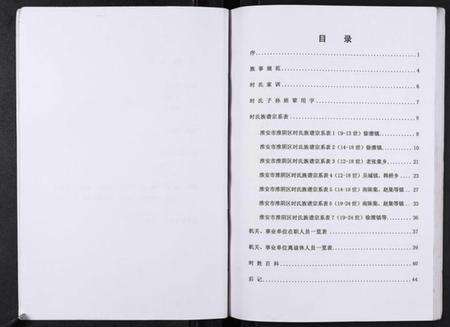 目 录
序 1
族 事 规 范 4
时 氏 家 训 6
时 氏 子 孙 班 辈 用 字 7
时氏族谱宗系表 8
淮安市淮阴区时氏族谱宗系表1（9-13世）徐溜镇 9
淮安市淮阴区时氏族谱宗系表2（14-18世）徐溜镇 10
淮安市淮阴区时氏族谱宗系表3（12-18世）老张集乡 21
淮安市淮阴区时氏族谱宗系表4（12-18世）吴城镇、韩桥乡 23
淮安市淮阴区时氏族谱宗系表5（14-18世）南陈集、赵集等镇 27
淮安市淮阴区时氏族谱宗系表6（19-24世）南陈集、赵集等镇 33
淮安市淮阴区时氏族谱宗系表7（19-24世）徐溜镇等 36
机关、事业单位在职人员一览表 37
机关、事业单位离退休人员一览表 39
时 姓 百 科 40
后 记 44